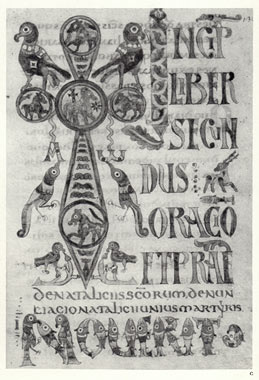 INCP
LIBER
SECUN
DUS
ORACO
ET PRAE
DENATALICIISSCORUM.DENUN
TIACIONATALICIIUNIUSMARTYRIS